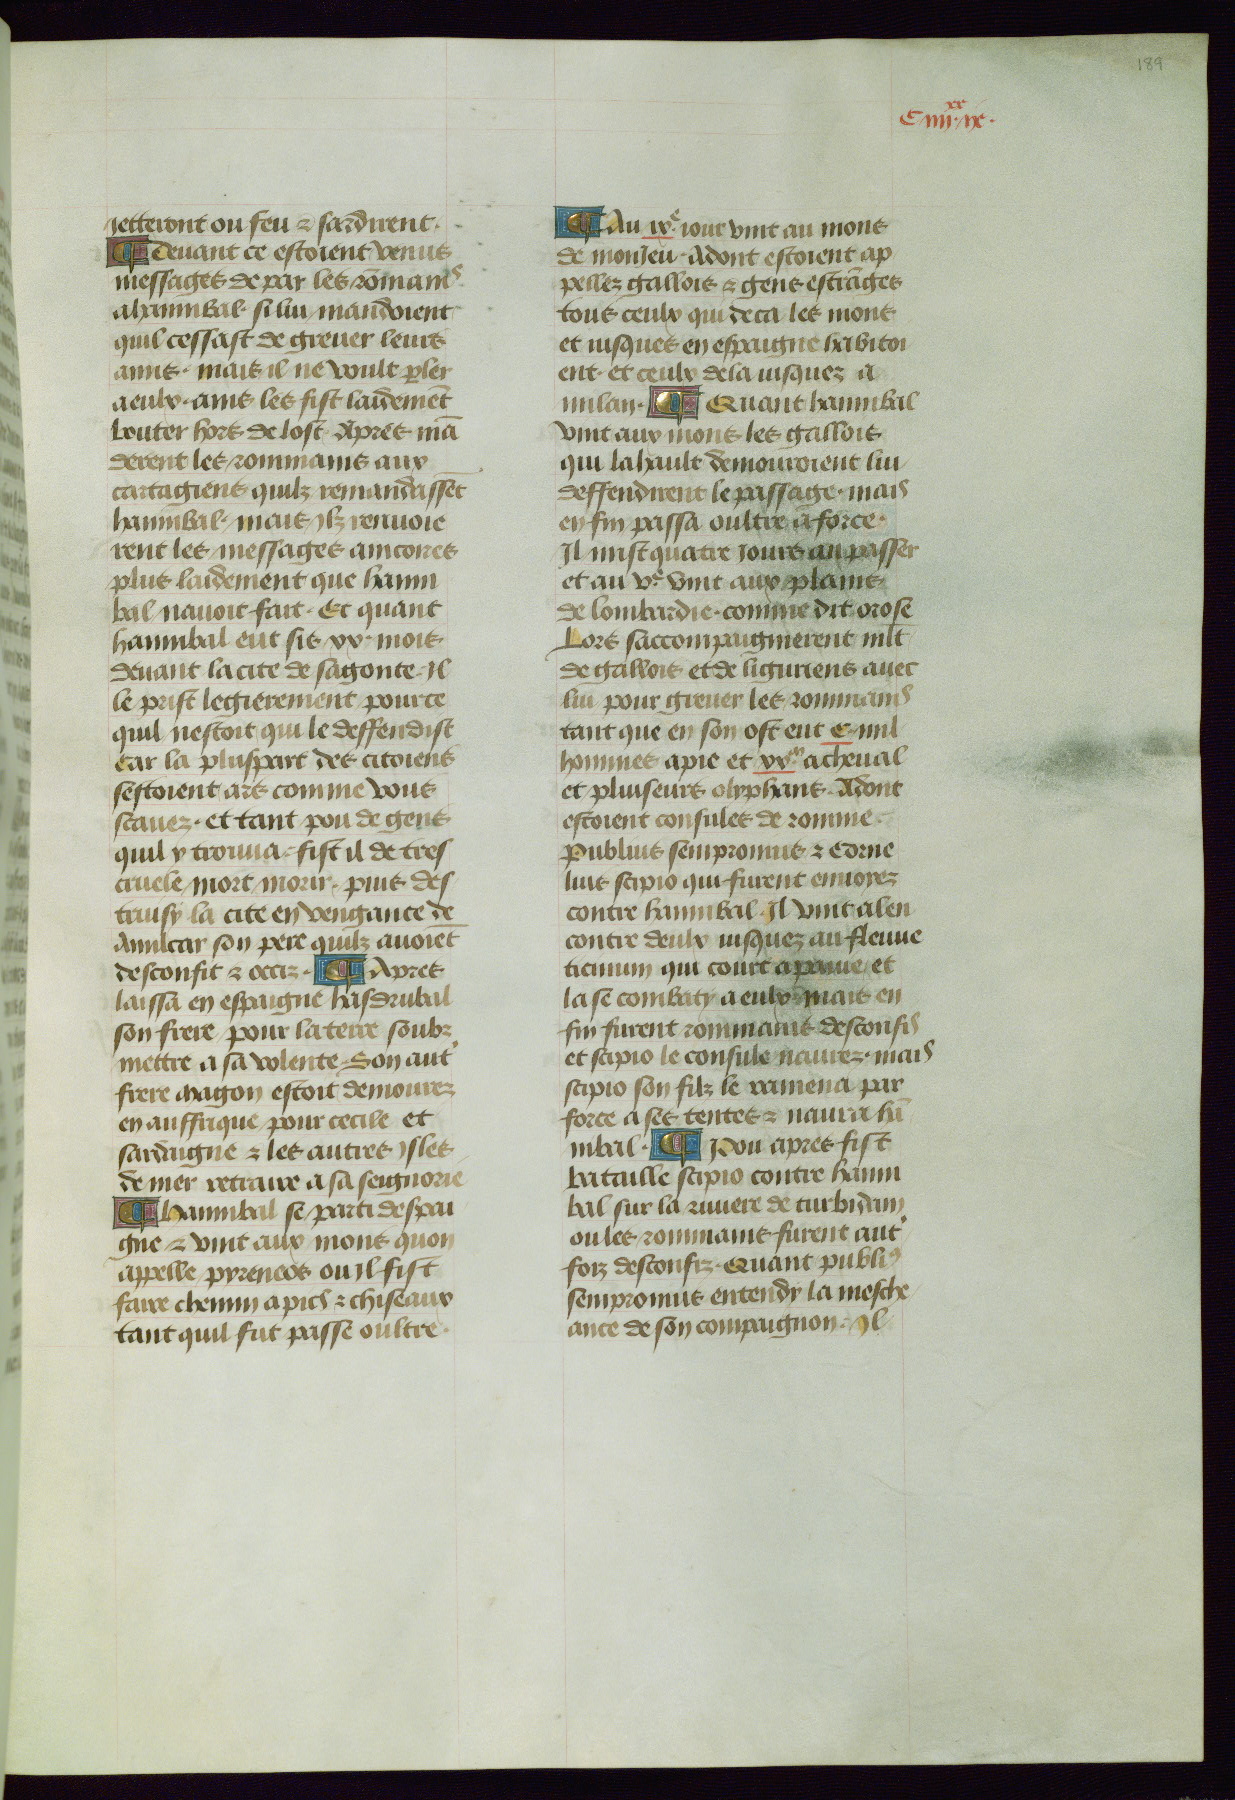 189
C iiii xx ix.
Jetteront ou feu & sardirent.
¶ Deuant ce estoient venus
messages de par les rommans
a hannibal. si lui mandoient
quil cessast de greuer leurs
amis. mais il ne voult pler
a eulx. ains les fist laidemẽt
bouter hors de lost. Apres mã
derent les rommains aux
cartagiens quilz remandassẽt
hannibal. mais Ilz renuoie
rent les messages aincores
plus laidement que hanni
bal nauoit fait. Et quant
hannibal eut sis xx. mois
deuant la cite de sagonte. Il
le prist legierement pource
quil nestoit qui le deffendist
Car la pluspart des citoiens
sestoient ars comme vous
scauez. et tant pou de gens
quil y trouua. fist il de tres
cruele mort morir. puis des
truisy la cite en vengance de
Amilcar son pere quilz auoiẽt
desconfit & occiz. ¶ Apres
laissa en espaigne hasdrubal
son frere pour la terre soubz
mettre a sa volente. Son aut'
frere Magon estoit demourez
en auffrique pour cecile et
sardaigne & les autres Isles
de mer retraire a sa seignorie
¶ Hannibal se parti despai
gne & vint aux mons quon
appelle pyreneos ou Il fist
faire chemin a pics & chiseaux
tant quil fut passe oultre.
¶ Au ixe. iour vint au mont
de monJeu. Adont estoient ap
pellez gallois & gens estrãges
tous ceulx qui deca les mons
et iusques en espaigne habitoi
ent. et ceulx dela iusquez a
milan. ¶ Quant hannibal
vint aux mons les gallois
qui lahault demouroient lui
deffendirent le passage. mais
en fin passa oultre a force.
Il mist quatre Jours au passer
et au ve vint aux plains
de lombardie. comme dit orose
Lors saccompaignierent mlt
de gallois et de liguriens auec
lui pour greuer les rommans
tant que en son ost eut C. mil
hommes a pie et xxm a cheual
et pluiseurs olyphans. Adont
estoient consules de romme
Publius sempronius & Corne
lius scipio qui furent enuoyez
contre hannibal. Il vint alen
contre deulx iusquez au fleuue
ticinum qui court a pauie, et
la se combaty a eulx. mais en
fin furent rommains desconfis
et scipio le consule naurez. mais
scipio son filz le ramena par
force a ses tentes & naura hã
nibal. ¶ Pou apres fist
bataille scipio contre hanni
bal sur la riuiere de turbidam
ou les rommains furent aut'
foiz desconfiz. Quant publi9
sempronius entendy la mesche
ance de son compaignon. Il